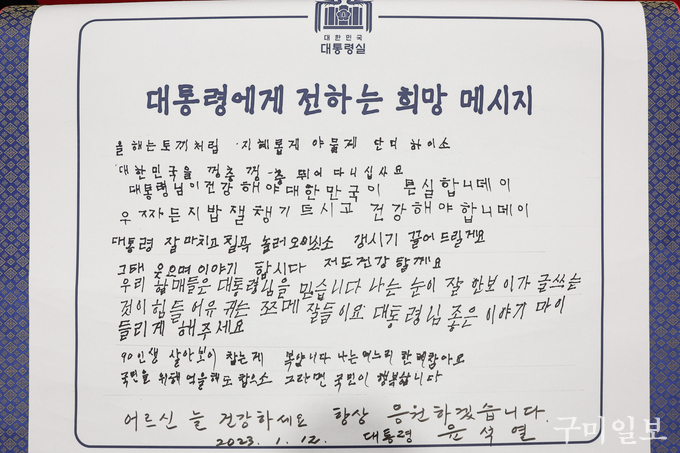 대한민국
대통령실
대통령에게 전하는 희망 메시지
올해는토끼처럼 지혜롭게 야물게 단디 하이소
대한민국을 껑충껑충 뛰어 다니십시요
대통령님이건강해야대한만국이 튼실합니데이
우짜든지밥잘챙기드시고 건강해야합니데이
대통령 잘마치고칠곡 놀러오이소 갱시기 끓어드릴게요
그때 웃으며이야기 합시다 저도건강할께요
우리 할매들은 대통령님을 믿습니다 나는 눈이 잘 안보이가 글쓰는
것이힘들어유 귀는 쪼메 잘들이요 대통령님 좋은이야기 마이
들리게 해주세요
90인생 살아보이 참는게 복입니다 나는며느리 한테참아요
국민을 위해 억울해도 참으소 그라면 국민이 행복합니다
어르신 늘 건강하세요 항상 응원하겠습니다.
2023. 1. 12. 대통령 윤석열
구미일보